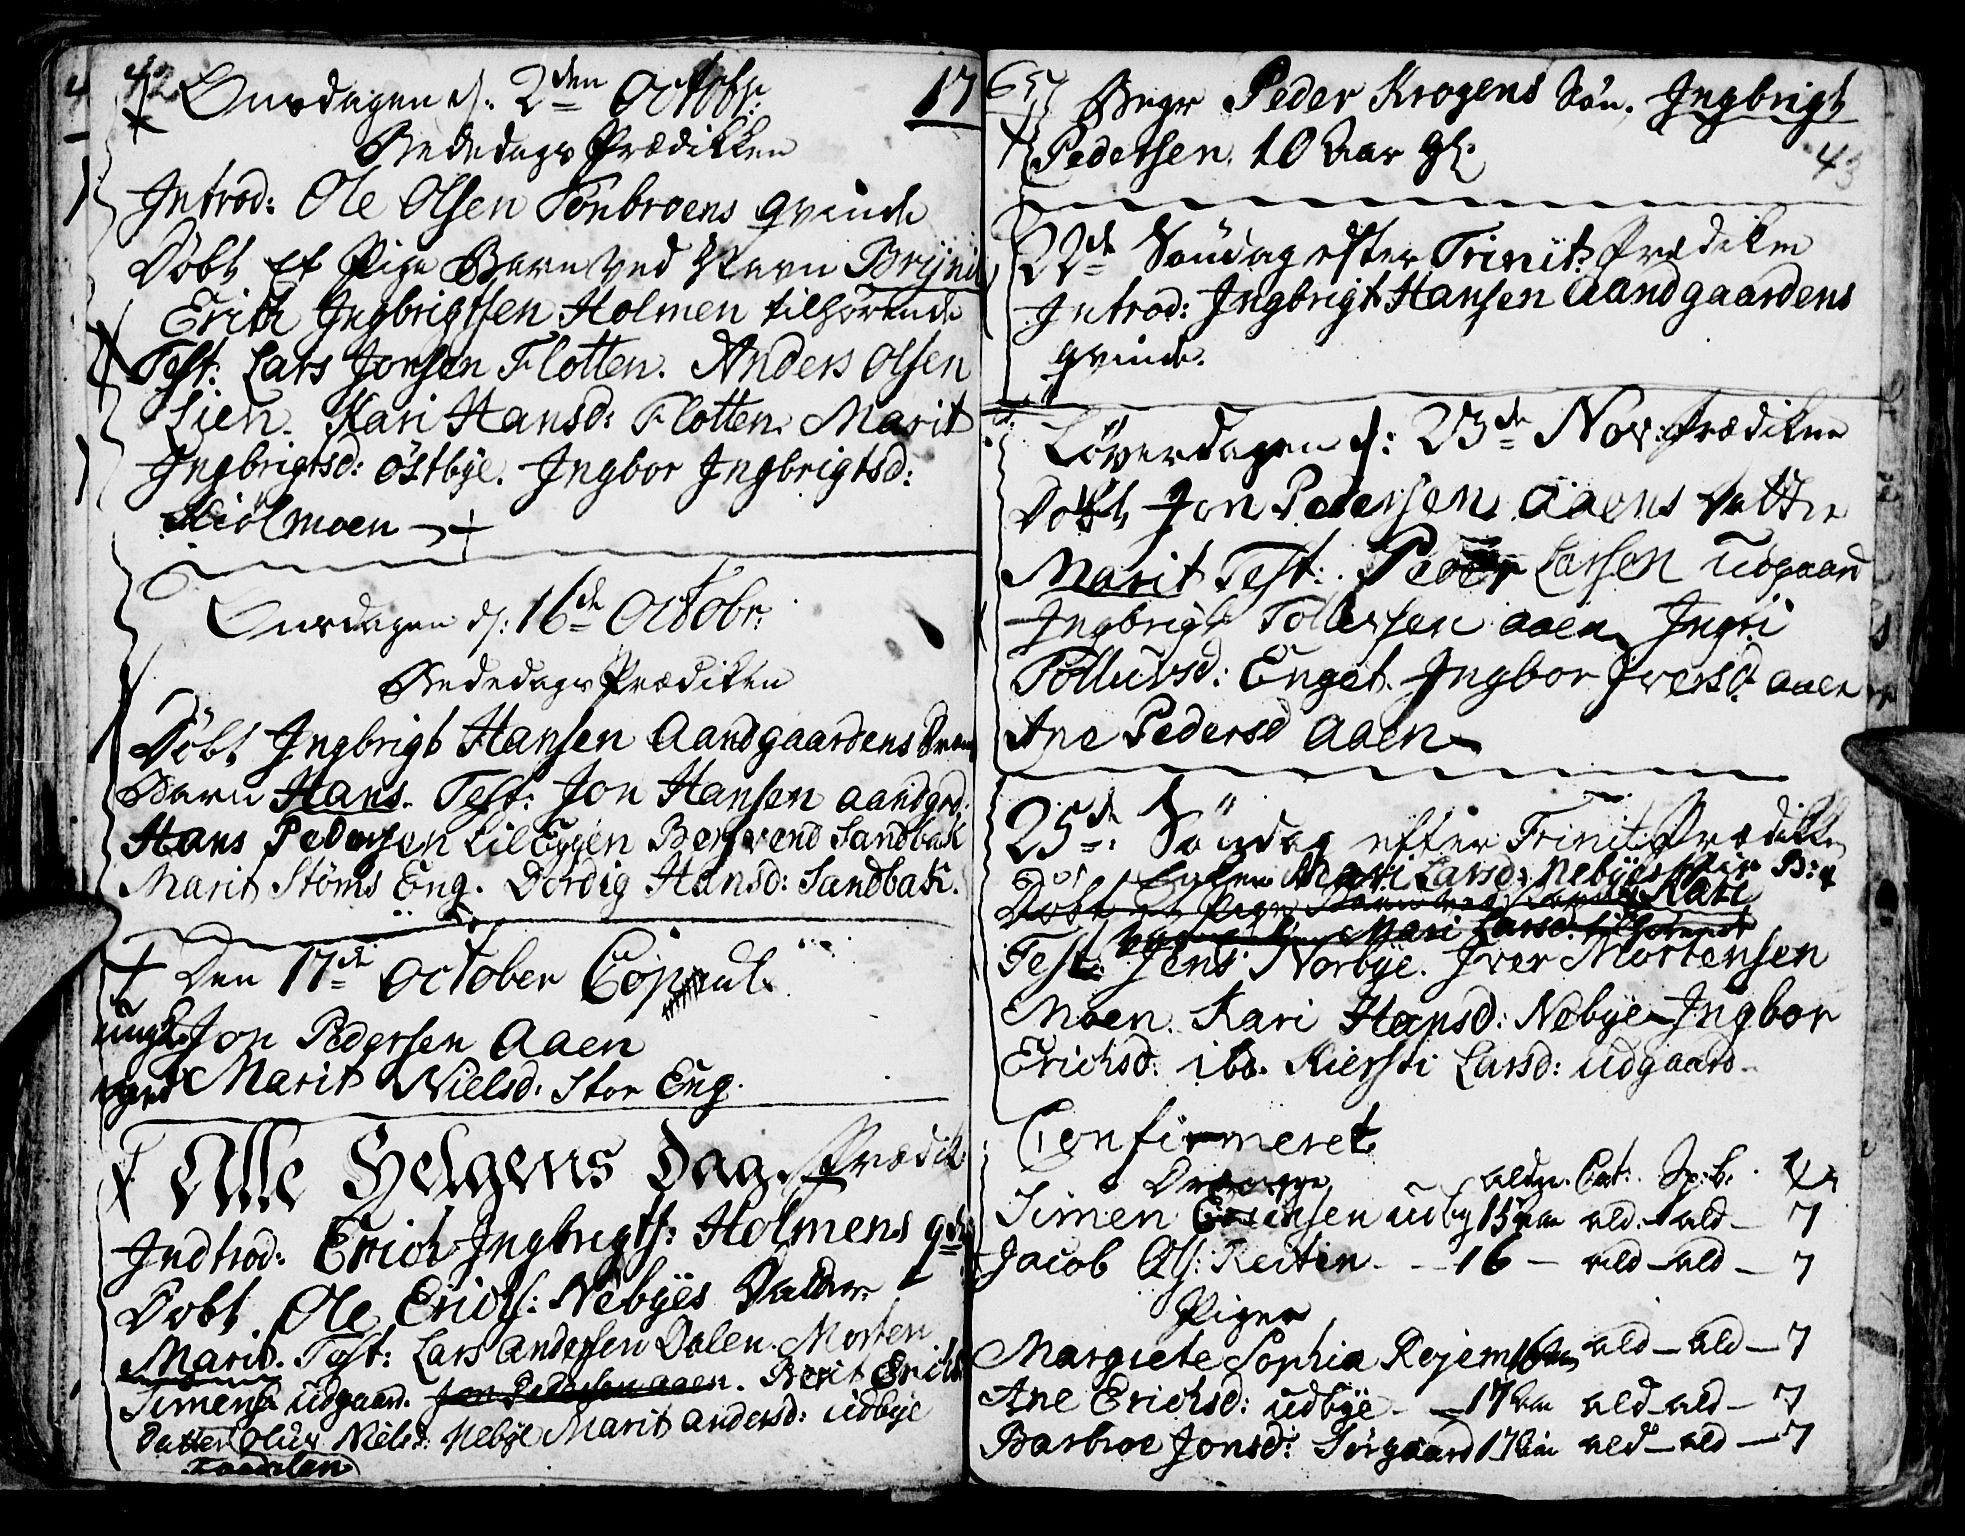 42
Onsdagen d. 2den Octobr: 17
Bededags Prædikken
Introd: Ole Olsen Tønbroens qvinde
Døbt Et Pige Barn ved Navn Brijnil
Erich Ingbrigtsen Holmen tilhørende
Test: Lars Jonsen Flotten. Anders Olsen
Lien. Kari Hansd: Flotten. Marit
Ingbrigtsd: Østbye. Ingbor Ingbrigtsd:
Kiølmoen
Onsdagen d: 16de Octobr:
Bededags Prædiken
Døbt Ingbrigt Hansen Aandgaardens
Barn Hans. Test: Jon Hansen aandgrd:
Hans Pedersen LilEngen Bersvend Sandbak
Marit Støms Eng. Dordig Hansd: Sandbak.
Den 17de October Copul.
ungk. Jon Pedersen Aaen
Marit Nielsd. Stor Eng.
Alle Helgens Dag. Prædik
Indtrod: Erich Ingbrigts: Holmens
Døbt. Ole Erichs: Nebyes Datter
Marit. Test: Lars Andersen Dalen. Morten
Simens. udgaard. Jon Pedersen aaen. Berit Erichs
Datter Nielsd: Nebye Marit andersd: udbye
65 Begr Peder Krogens Søn. Ingbrigt
Pedersen. 10 Aar gl: 43
22de Søndag efter Trinit: Prædiken
Introd: Ingbrigt Hansen Aandgaardens
qvinde.
Løverdagen d: 23de Nov: Prædiken
Døbt Jon Pedersen Aaens Datter
Marit Test: Peder Larsen udgaard
Ingbrigt Tollefsen aaen Ingri
Polluvsd: Enget. Ingbor Iversd. aaen
Ane Pedersd Aaen
25de Søndag efter Trinit: Prædikken
Mari Larsd: Nebyes B:
Døbt et Pige Barn ved Navn Kari
Mari Larsd. tilhørende
Test: Jens Norbye. Iver Mortensen
Moen. Kari Hansd: Nebye Ingbor
Erichsd. ibd. Kiersti Larsd: udgaard
Confirmeret
Drænge
Simen Erichsen udby 15 aar vel - vel - 7
Jacob Ols: Reiten - 16 - vel - vel - 7
Piger
Margrete Sophia Rejem 16 vel - vel - 7
Ane Erichsd: udbye - 17 aar vel - vel - 7
Barbroe Jonsd: Sørgaard 17 aar vel - vel - 7